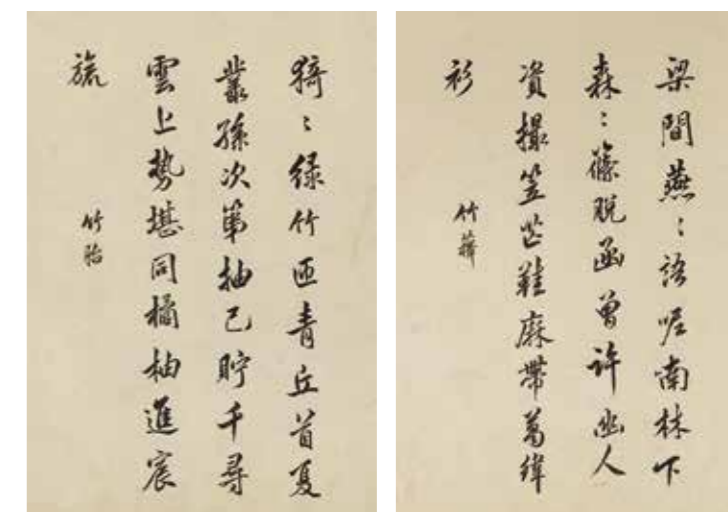 梁間燕〻語呢南林下
森〻篠脫函曾許幽人
資撮笠芒鞋麻帶葛緯
衫
竹蘀
猗〻緑竹匝青丘首夏
叢孫次第抽已貯千尋
雲上勢堪同橘柚進宸
旒
竹胎